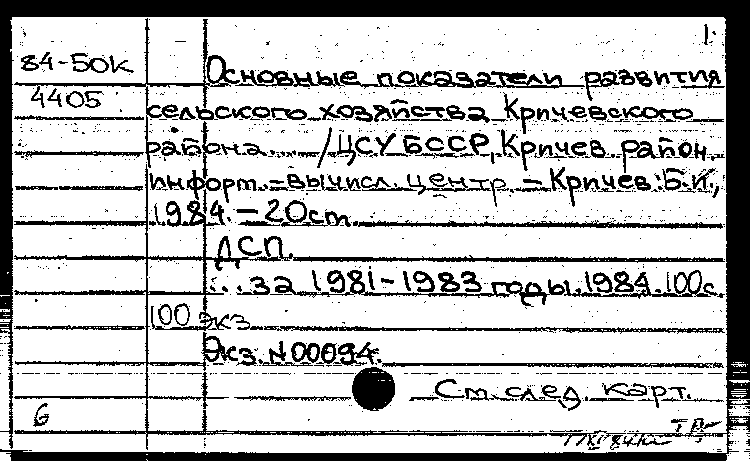 1.
84-50к
4405
Основные показатели развития
сельского хозяйства Кричевского
района... /ЦСУ БССР, Кричев. район.
информ.-вычисл. центр. - Кричев: Б.И.,
1984. - 20см
ДСП.
... за 1981-1983 годы. 1984. 100с.
100 экз.
Экз. N00094.
См. след. карт.
6